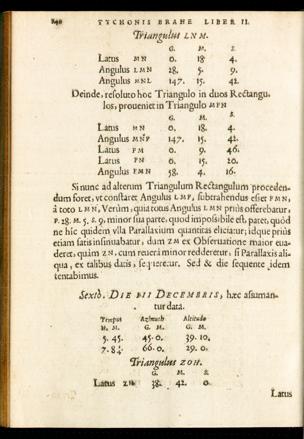 240 TYCHONIS BRAHE LIBER II.
Triangulus LNM.
G. M. S.
Latus MN 0. 18. 4.
Angulus LMN 28. 5. 9.
Angulus MNL 147. 15. 42.
Deinde, resoluto hoc Triangulo in duos Rectangu-
los, proueniet in Triangulo MPN
G. M. S.
Latus MN 0. 18. 4.
Angulus MNP 147. 15. 42.
Latus PM 0. 9. 46.
Latus PN 0. 15. 20.
Angulus PMN 58. 4. 16.
Si nunc ad alterum Triangulum Rectangulum proceden-
dum foret, vt constaret Angulus LMP, subtrahendus esset PMN,
à toto LMN, Verùm, quia totus Angulus LMN priùs offerebatur,
P. 28. M. 5, S. 9, minor sua parte, quod impossibile est, patet, quòd
ne hîc quidem vlla Parallaxium quantitas eliciatur; idque priùs
etiam satis insinuabatur, dum ZM ex Obseruatione maior eua-
deret, quàm ZN, cum reuerâ minor redderetur, si Parallaxis ali-
qua, ex talibus datis, sequeretur. Sed & die sequente idem
tentabimus.
Sextò, DIE VII DECEMBRIS, hæc assuman-
tur data.
Tempus Azimuth Altitudo
H. M. G. M. G. M.
5. 45. 45. 0. 39. 10.
7. 84. 66. 0. 29. 0.
Triangulus ZOH.
G. M. S.
Latus ZH 38. 42. 0.
Latus